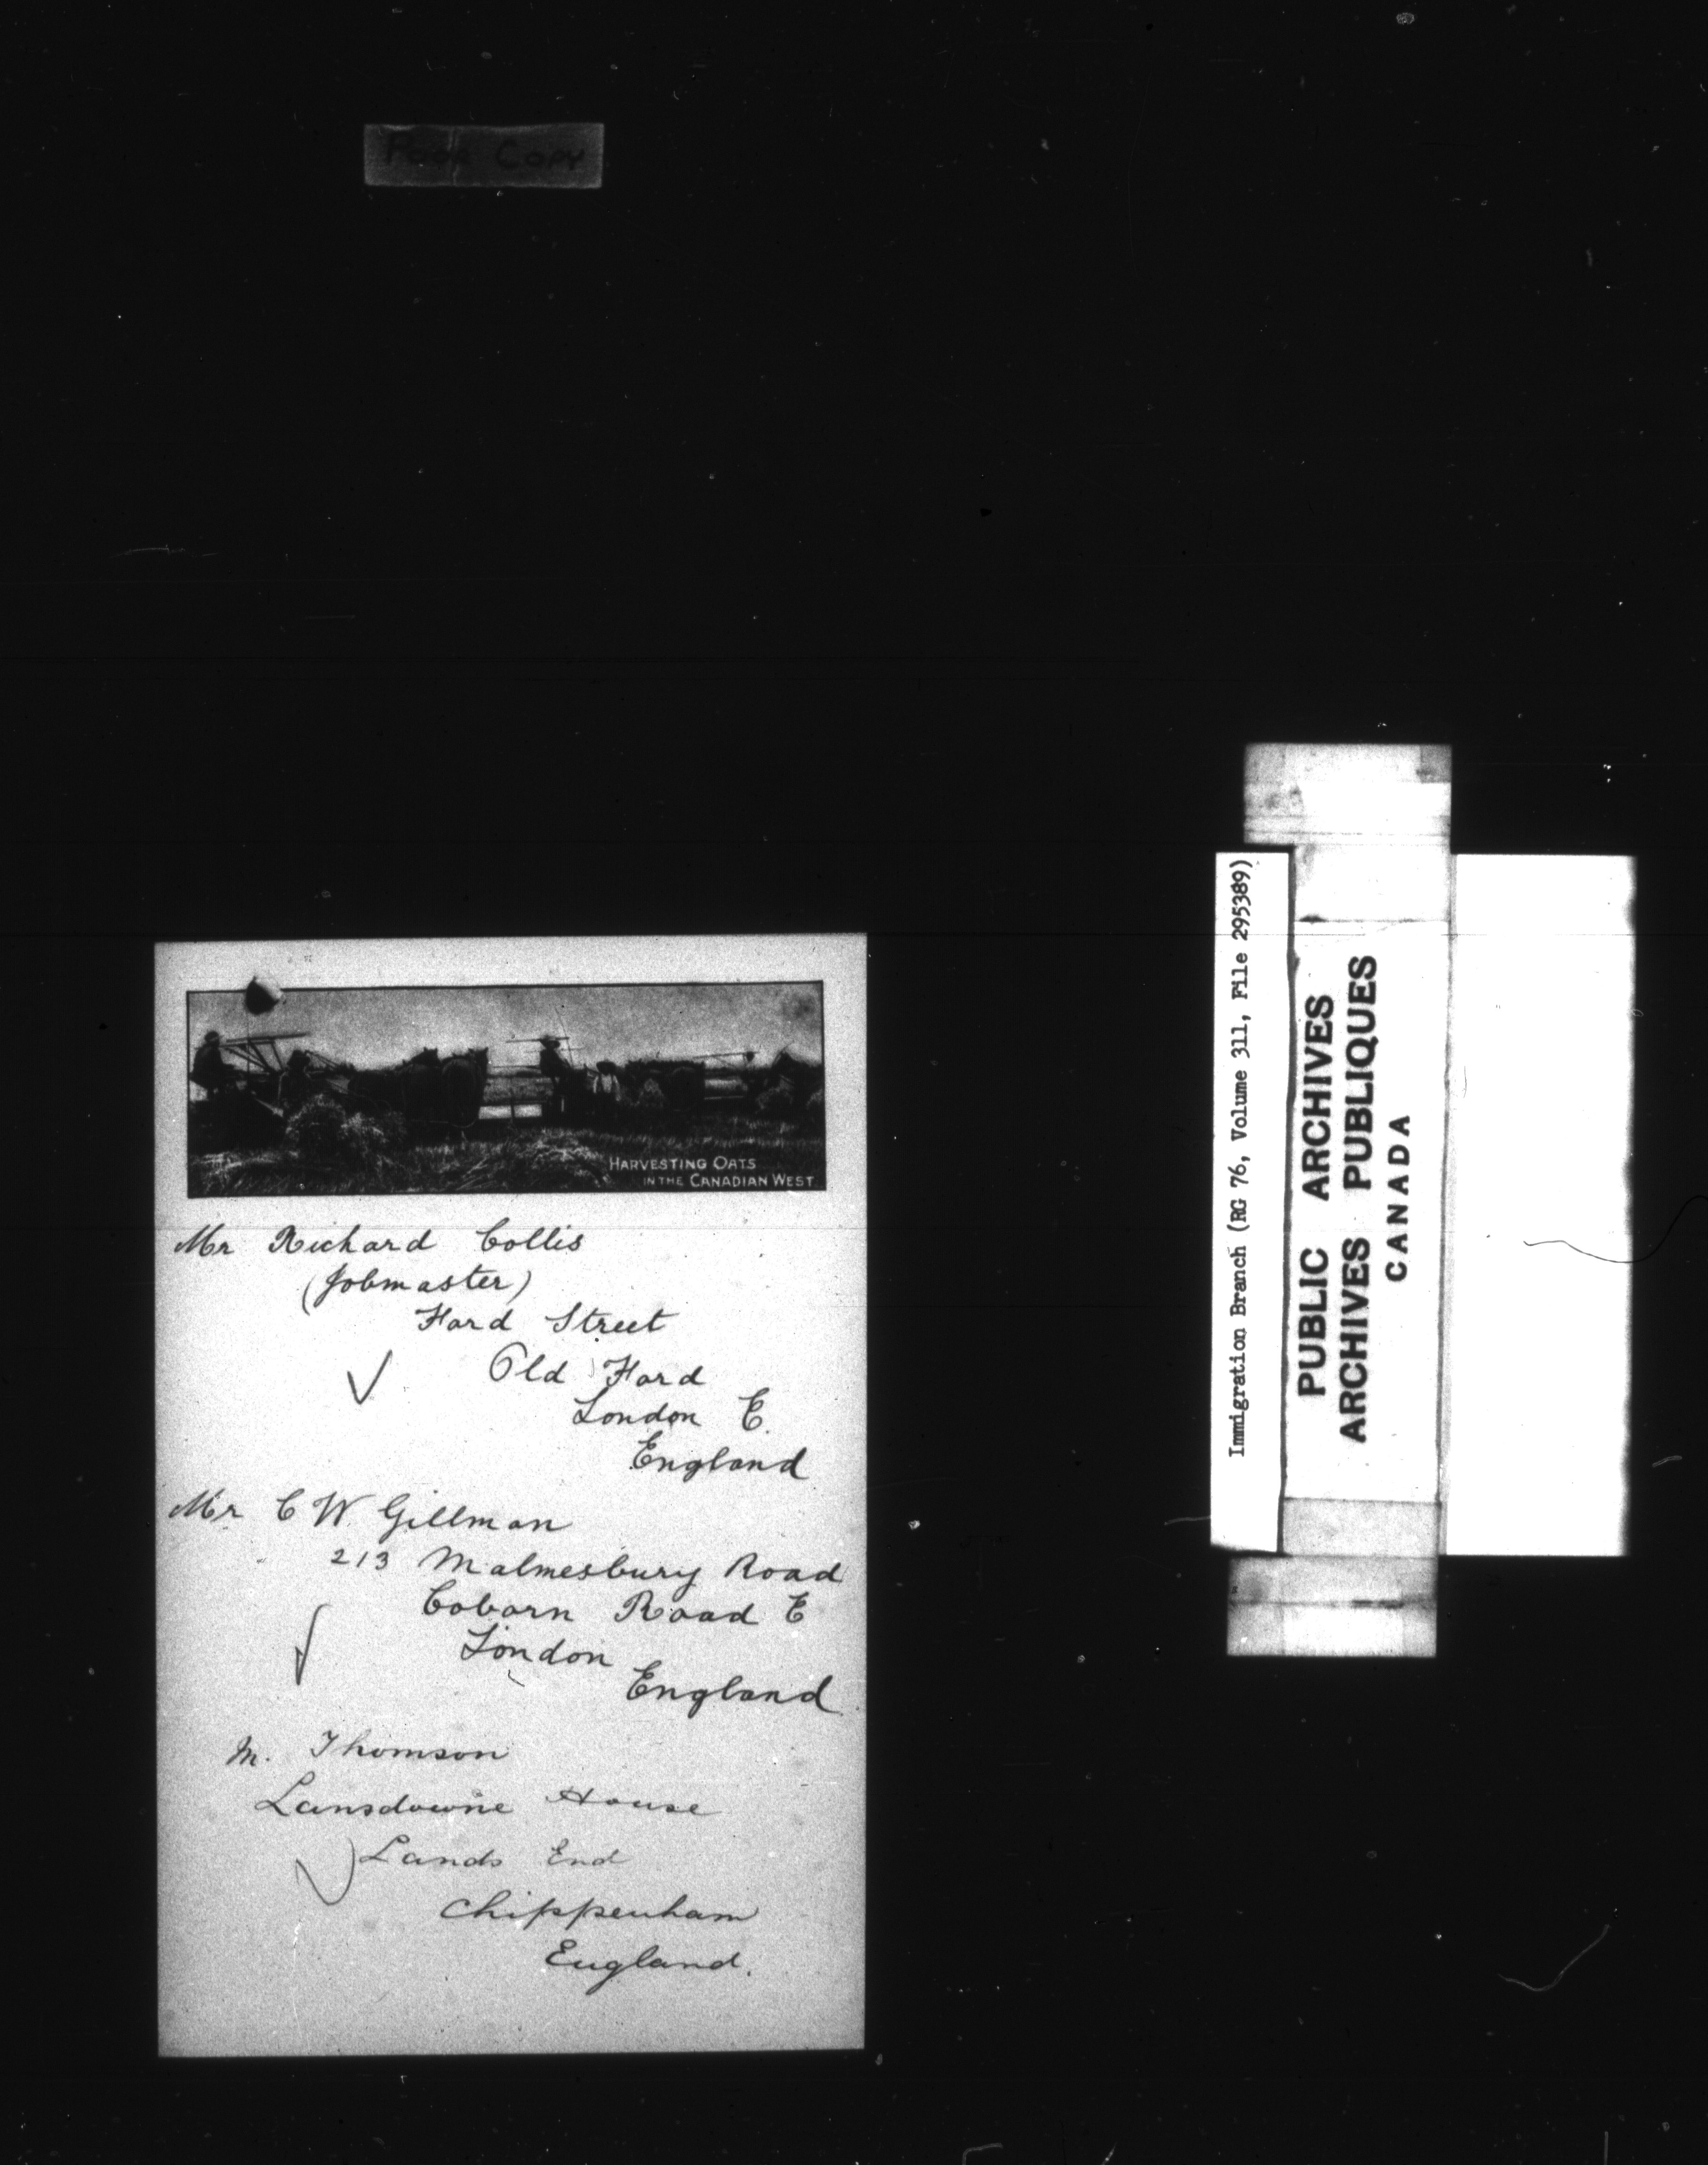 Poor Copy
HARVESTING OATS
IN THE CANADIAN WEST
Mr Richard Collis
(Jobmaster)
Ford Street
Old Ford
London E.
England
Mr C W Gillman
213 Malmesbury Road
Coborn Road E
London
England
M. Thomson
Lansdowne House
Lands End
Chippenham
England.
Immigration Branch (RG 76, Volume 311, File 295389)
PUBLIC ARCHIVES
ARCHIVES PUBLIQUES
CANADA